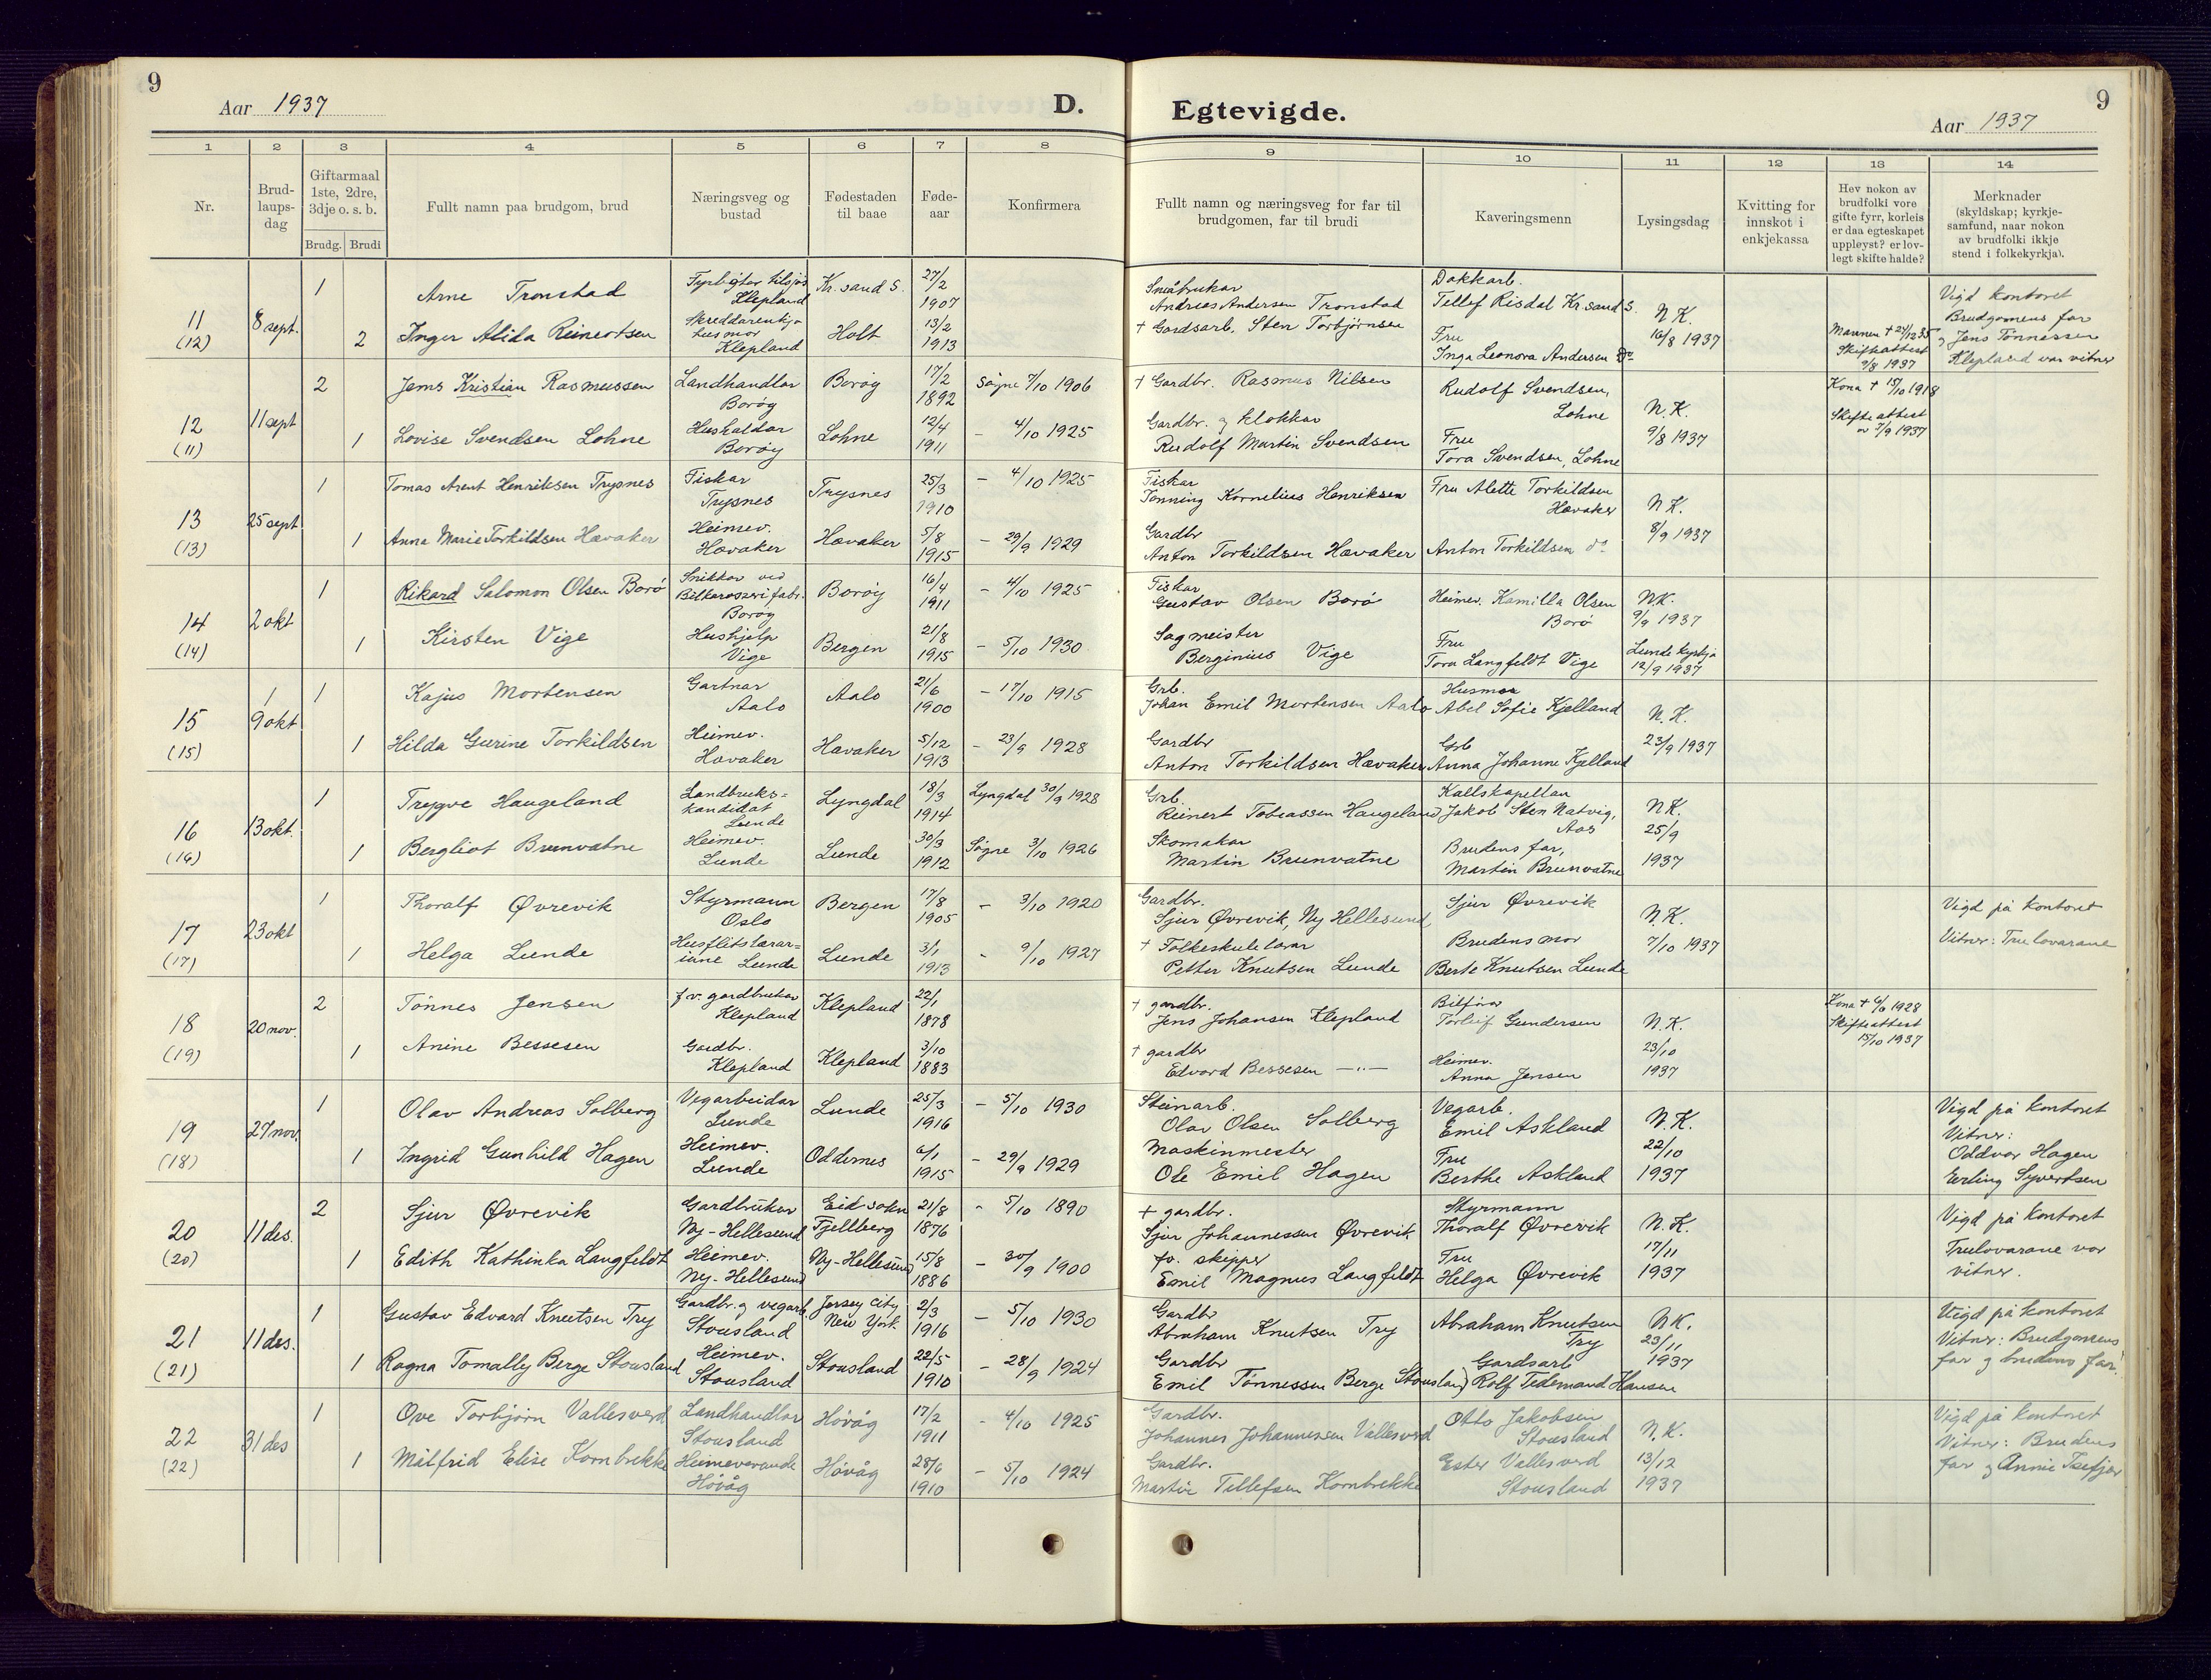 9
Aar 1937
D.
Egtevigde.
Aar 1937
9
1 2 3 4 5 6 7 8 9 10 11 12 13 14
Nr.
Brud-
laups-
dag
Giftarmaal
1ste, 2dre,
3dje o. s. b.
Brudg. Brudi
Fullt namn paa brudgom, brud
Næringsveg og
bustad
Fødestaden
til baae
Føde-
aar
Konfirmera
Fullt namn og næringsveg for far til
brudgomen, far til brudi
Kaveringsmenn
Lysingsdag
Kvitting for
innskot i
enkjekassa
Hev nokon av
brudfolki vore
gifte fyrr, korleis
er daa egteskapet
uppløyst? er lov-
legt skifte halde?
Merknader
(skyldskap; kyrkje-
samfund, naar nokon
av brudfolki ikkje
stend i folkekyrkja).
11
(12)
8 sept.
1
Arne Tronstad
Fyrbøter tilsjøs
Klepland
Kr.sand S.
27/2
1907
Småbrukar
Andreas Andersen Tronstad
Dokkarb.
Tellef Risdal Kr.sand S.
N.K.
16/8 1937
2
Inger Alida Reinertsen
husmor
Klepland
Holt
13/2
1913
+ Gardsarb. Sten Torbjørnsen
Fru
Inga Leonora Andersen do
Mannen + 24/12 35
Skifteattest
9/8 1937
Vigd kontoret
Brudgomens far
og Jens Tønnessen
Klepland var vitner
12
(11)
11 sept
2
Jems Kristian Rasmussen
Landhandlar
Borøy
Borøy
17/2
1892
Søgne 7/10 1906
+ Gardbr. Rasmus Nilsen
Rudolf Svendsen,
Lohne
N.K.
9/8 1937
Kona + 15/10 1918
Skifteattest
av 3/9 1937
1
Lovise Svendsen Lohne
Hushaldar
Borøy
Lohne
12/4
1911
– 4/10 1925
Gardbr. og klokkar
Rudolf Martin Svendsen
Fru
Tora Svendsen, Lohne
13
(13)
25 sept
1
Tomas Arent Henriksen Trysnes
Fiskar
Trysnes
Trysnes
25/3
1910
– 4/10 1925
Fiskar
Tønning Kornelius Henriksen
Fru Alette Torkildsen
Hævaker
N.K.
8/9 1937
1
Anna Marie Torkildsen Hævaker
Heimev.
Hævaker
Hævaker
5/8
1915
– 29/9 1929
Gardbr
Anton Torkildsen Hævaker
Anton Torkildsen do
14
(14)
2 okt
1
Rikard Salomon Olsen Borø
Snikkar ved
Bilkarosserifabr.
Borøy
Borøy
16/4
1911
– 4/10 1925
Fiskar
Gustav Olsen Borø
Heimev. Kamilla Olsen
Borø
N.K.
9/9 1937
1
Kirsten Vige
Hushjelp
Vige
Bergen
21/8
1915
– 5/10 1930
Sagmeister
Berginius Vige
Fru
Tora Langfeldt Vige
Lunde kyrkja
12/9 1937
15
(15)
9 okt
1
Kajus Mortensen
Gartnar
Aalo
Aalo
21/6
1900
– 17/10 1915
Grb.
Johan Emil Mortensen Aalo
Husmor
Abel Sofie Kjelland
N.K.
23/9 1937
1
Hilda Gurine Torkildsen
Heimev.
Hævaker
Hævaker
5/12
1913
– 23/9 1928
Gardbr
Anton Torkildsen Hævaker
Grb
Anna Johanne Kjelland
16
(16)
13 okt.
1
Trygve Haugeland
Landbruks-
kandidat
Lunde
Lyngdal
18/3
1914
Lyngdal 30/9 1928
Grb.
Reinert Tobiassen Haugeland
Kallskapellan
Jakob Sten Natvig,
Aas
N.K.
25/9
1937
1
Bergliot Brunvatne
Heimev.
Lunde
Lunde
30/3
1912
Søgne 3/10 1926
Skomakar
Martin Brunvatne
Brudens far,
Martin Brunvatne
17
(17)
23 okt
1
Thoralf Øvrevik
Styrmann
Oslo
Bergen
17/8
1905
– 3/10 1920
Gardbr.
Sjur Øvrevik, Ny Hellesund
Sjur Øvrevik
N.K.
7/10 1937
Vigd på kontoret
Vitner: Trulovarane
1
Helga Lunde
Husflitslærar-
inne Lunde
Lunde
3/1
1913
– 9/10 1927
+ Folkeskulelærar
Petter Knutsen Lunde
Brudens mor
Berte Knutsen Lunde
18
(19)
20 nov.
2
Tønnes Jensen
f.v. gardbrukar
Klepland
Klepland
22/1
1878
+ gardbr.
Jens Johansen Klepland
Bilførar
Torleif Gundersen
N.K.
23/10
1937
Kona + 6/6 1928
Skifteattest
15/10 1937
1
Anine Bessesen
Gardbr.
Klepland
Klepland
3/10
1883
+ gardbr
Edvard Bessesen –"–
Heimev.
Anna Jensen
19
(18)
27 nov.
1
Olav Andreas Solberg
Vegarbeidar
Lunde
Lunde
25/3
1916
– 5/10 1930
Steinarb.
Olav Olsen Solberg
Vegarb.
Emil Askland
N.K.
22/10
1937
Vigd på kontoret
Vitner:
Oddvar Hagen
Erling Syvertsen
1
Ingrid Gunhild Hagen
Heimev.
Lunde
Oddernes
6/1
1915
– 29/9 1929
Maskinmester
Ole Emil Hagen
Fru
Berthe Askland
20
(20)
11 des.
2
Sjur Øvrevik
Gardbrukar
Ny-Hellesund
Eid sokn
Fjellberg
21/8
1876
– 5/10 1890
+ gardbr.
Sjur Johannessen Øvrevik
Styrmann
Thoralf Øvrevik
N.K.
17/11
1937
Vigd på kontoret
Trulovarane var
vitner.
1
Edith Kathinka Langfeldt
Heimev.
Ny-Hellesund
Ny-Hellesund
15/8
1886
– 30/9 1900
fv. skipper
Emil Magnus Langfeldt
Fru
Helga Øvrevik
21
(21)
11 des.
1
Gustav Edvard Knutsen Try
Gardbr. og vegarb.
Stousland
Jersey City
New York
2/3
1916
– 5/10 1930
Gardbr
Abraham Knutsen Try
Abraham Knutsen
Try
N.K.
23/11
1937
Vigd på kontoret
Vitner: Brudgomens
far og brudens far.
1
Ragna Tomally Berge Stousland
Heimev.
Stousland
Stousland
22/5
1910
– 28/9 1924
Gardbr
Emil Tønnessen Berge Stousland
Gardsarb
Rolf Tidemand Hansen
22
(22)
31 des
1
Ove Torbjørn Vallesverd
Landhandlar
Stousland
Høvåg
17/2
1911
– 4/10 1925
Gardbr.
Johannes Johannessen Vallesverd
Otto Jakobsen
Stousland
N.K.
13/12
1937
Vigd på kontoret
Vitner: Brudens
far og Annie
1
Milfrid Elise Kornbrekke
Heimeverande
Høvåg
Høvåg
28/6
1910
– 5/10 1924
Gardbr.
Martin Tellefsen Kornbrekke
Ester Vallesverd
Stousland